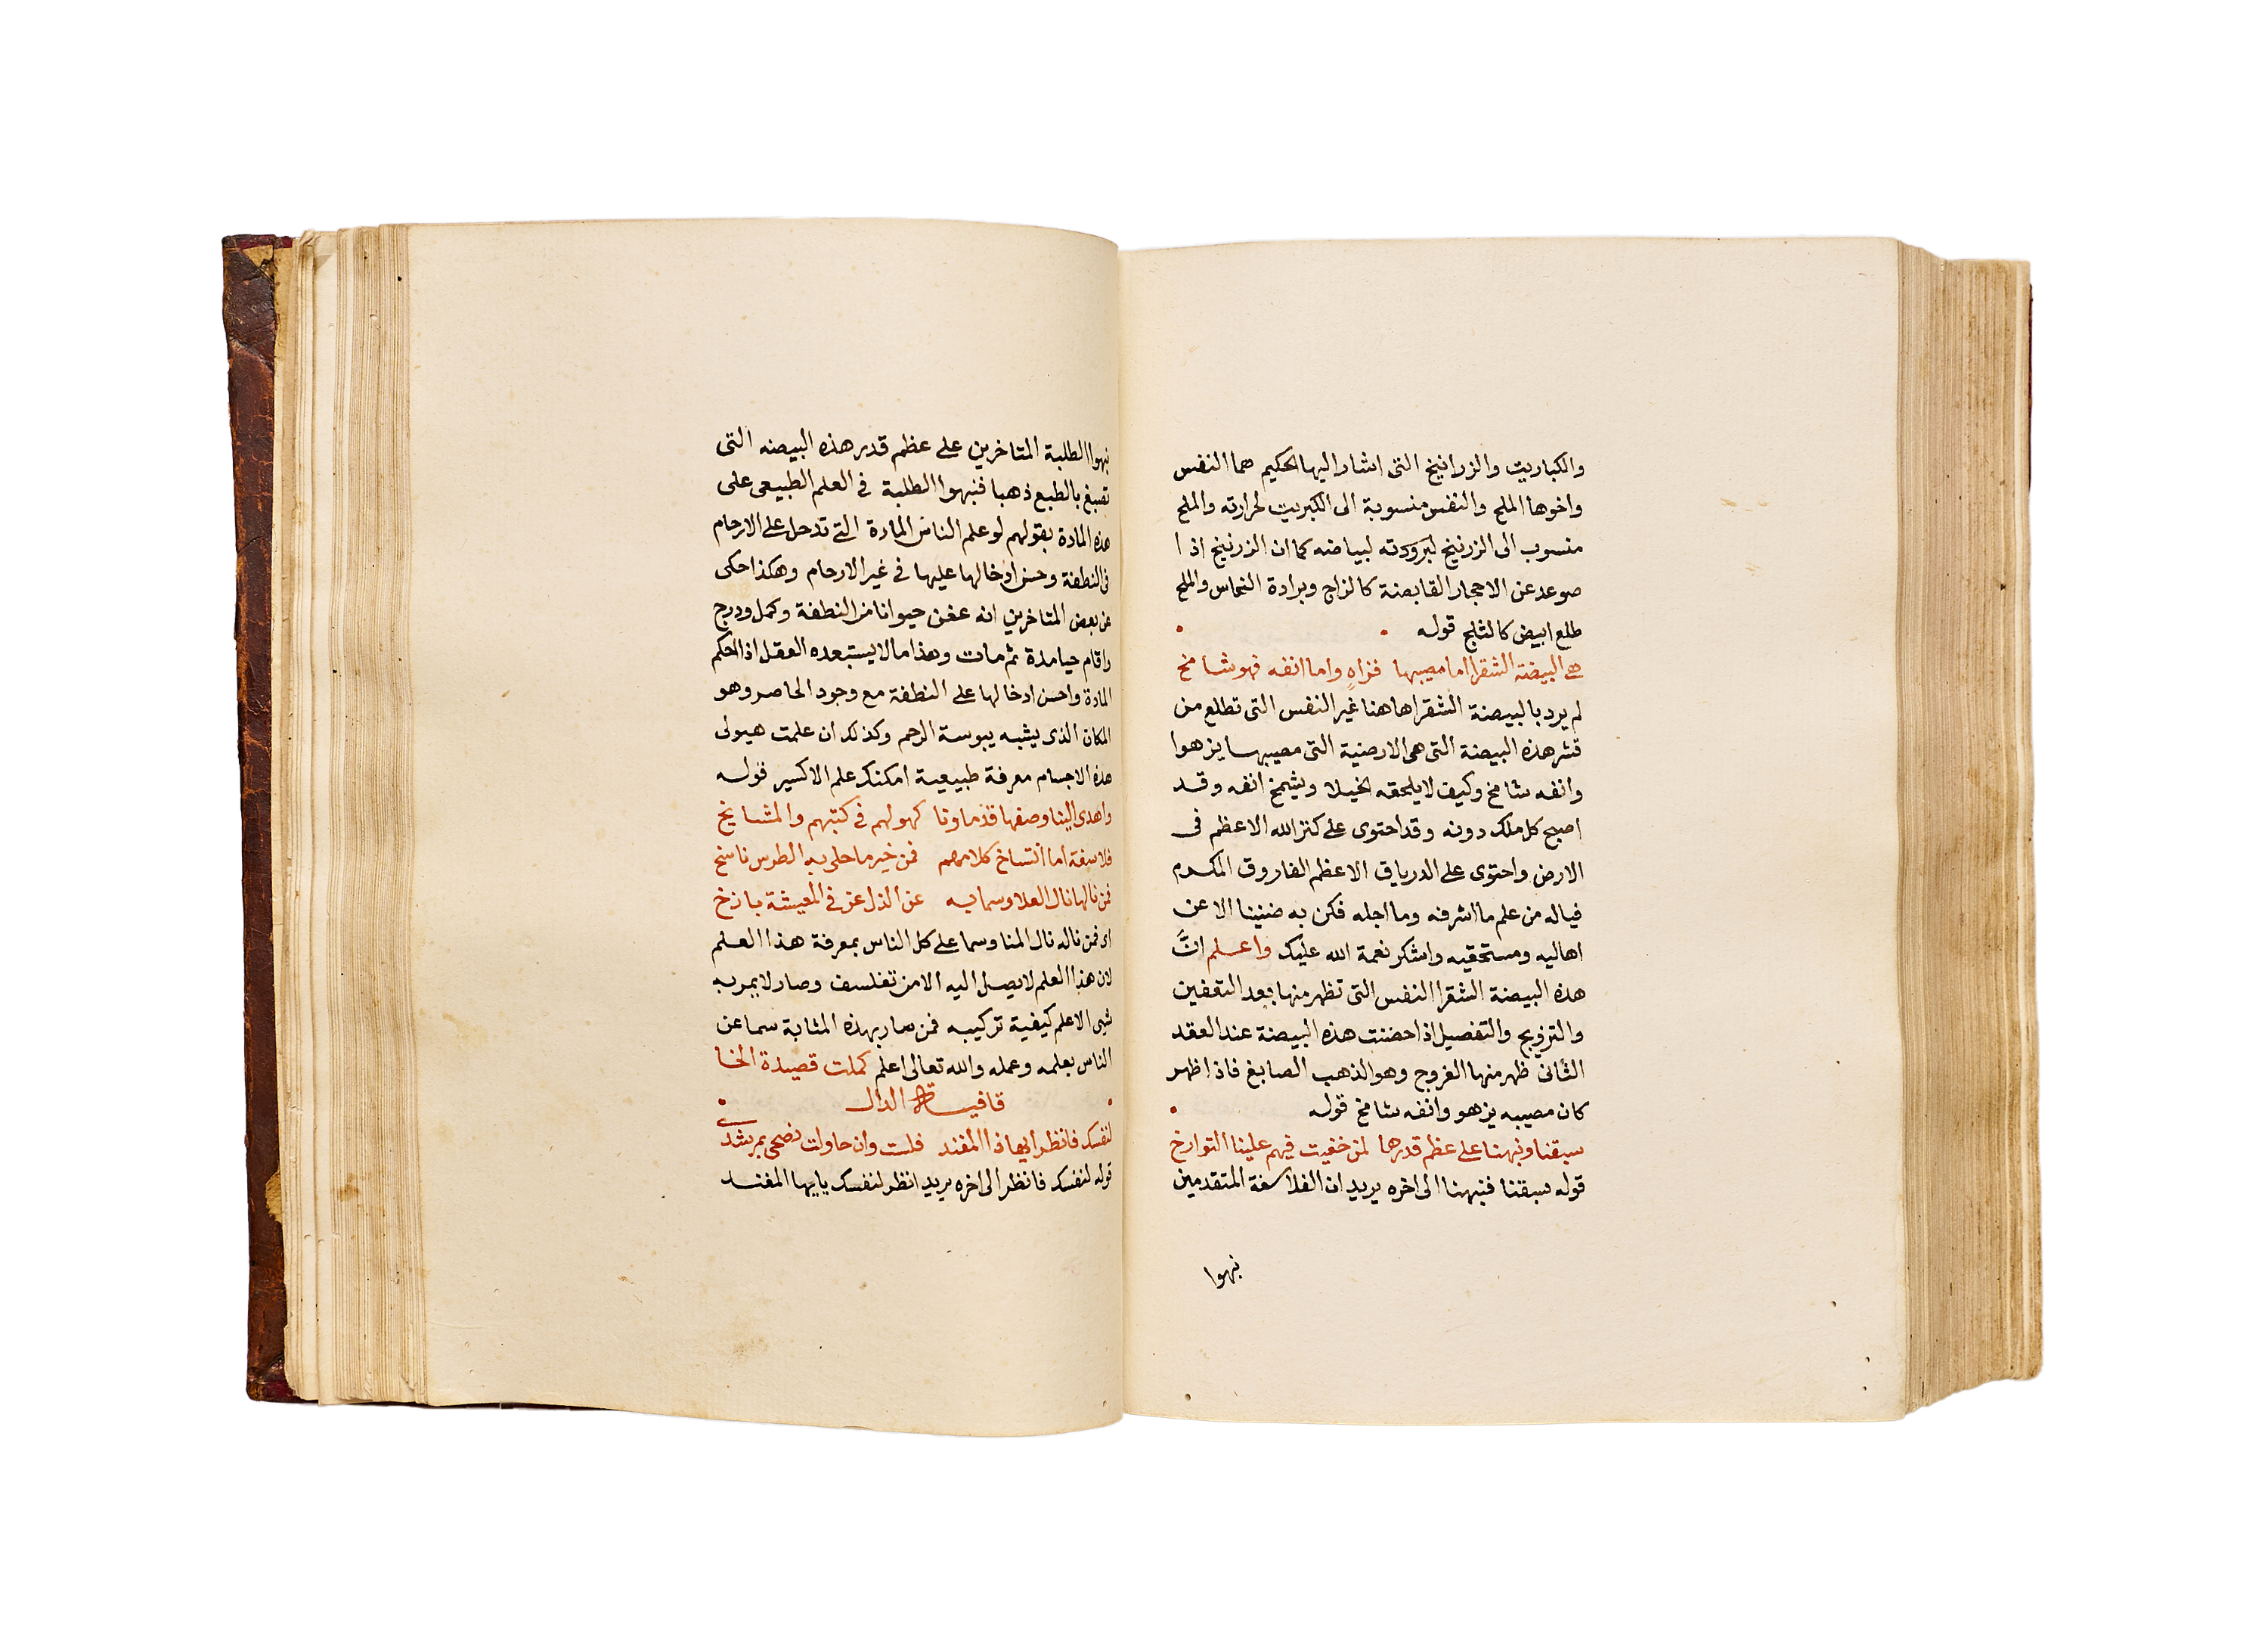 والكباريت والزرانيخ التى اشار اليها الحكيم هما النفس
واخوها الملح والنفس منسوبة الى الكبريت لحرارته والملح
منسوب الى الزرنيخ لبرودته لبياضه كما ان الزرنيخ اذا
صوعد عن الاحجار القابضة كالزاج وبرادة النحاس والملح
طلع ابيض كالثلج قوله
هى البيضة الشقرا اما مصيبها فزاهٍ واما انفه فهو شامخ
لم يرد بالبيضة الشقرا هاهنا غير النفس التى تطلع من
قشر هذه البيضة التى هى الارضية التى مصيبها يزهوا
وانفه شامخ وكيف لا يلحقه الخيلا ويشمخ انفه وقد
اصبح كل ملك دونه وقد احتوى على كنز الله الاعظم فى
الارض واحتوى على الدرياق الاعظم الفاروق المكرم
فياله من علم ما اشرفه وما اجله فكن به ضنينا الا عن
اهاليه ومستحقيه واشكر نعمة الله عليك واعلم انَّ
هذه البيضة الشقرا النفس التى تظهر منها بعد التعفين
والتزويج والتفصيل اذا حضنت هذه البيضة عند العقد
الثانى ظهر منها الفروج وهو الذهب الصابغ فاذا ظهر
كان مصيبه يزهو وانفه شامخ قوله
سبقنا ونبهنا على عظم قدرها لمن خفيت فيهم علينا التوارخ
قوله سبقنا فنبهنا الى اخره يريد ان الفلاسفة المتقدمين
نبهوا
نبهوا الطلبة المتاخرين على عظم قدر هذه البيضه التى
تصبغ بالطبع ذهبا فنبهوا الطلبة فى العلم الطبيعى على
هذه المادة بقولهم لو علم الناس المادة التى تدخل على الارحام
فى النطفة وحسن ادخالها عليها فى غير الارحام وهكذا حكى
عن بعض المتاخرين انه عفن حيوانا من النطفة وكمل ودرج
واقام حيا مدة ثم مات وهذا ما لا يستبعده العقل اذا احكم
المادة واحسن ادخالها على النطفة مع وجود الحاصر وهو
المكان الذى يشبه يبوسة الرحم وكذلك ان علمت هيولى
هذه الاجسام معرفة طبيعية امكنك علم الاكسير قوله
واهدى الينا وصفها قدماونا كهولهم فى كتبهم والمشايخ
فلاسفة اما انتساخ كلامهم فمن خير ما حلى به الطرس ناسخ
فمن نالها نال العلا وسما به عن الذل عز فى المعيشة باذخ
اى فمن ناله نال المنا وسما على كل الناس بمعرفة هذا العلم
لان هذا العلم لا يصل اليه الا من تفلسف وصار لا يمر به
شى الا علم كيفية تركيبه فمن صار بهذه المثابة سما عن
الناس بعلمه وعمله والله تعالى اعلم كملت قصيدة الخا
قافية الدال
لنفسك فانظر ايهاذا المفند فلست وان حاولت نصحى بمرشدى
قوله لنفسك فانظر الى اخره يريد انظر لنفسك يا ايها المفند